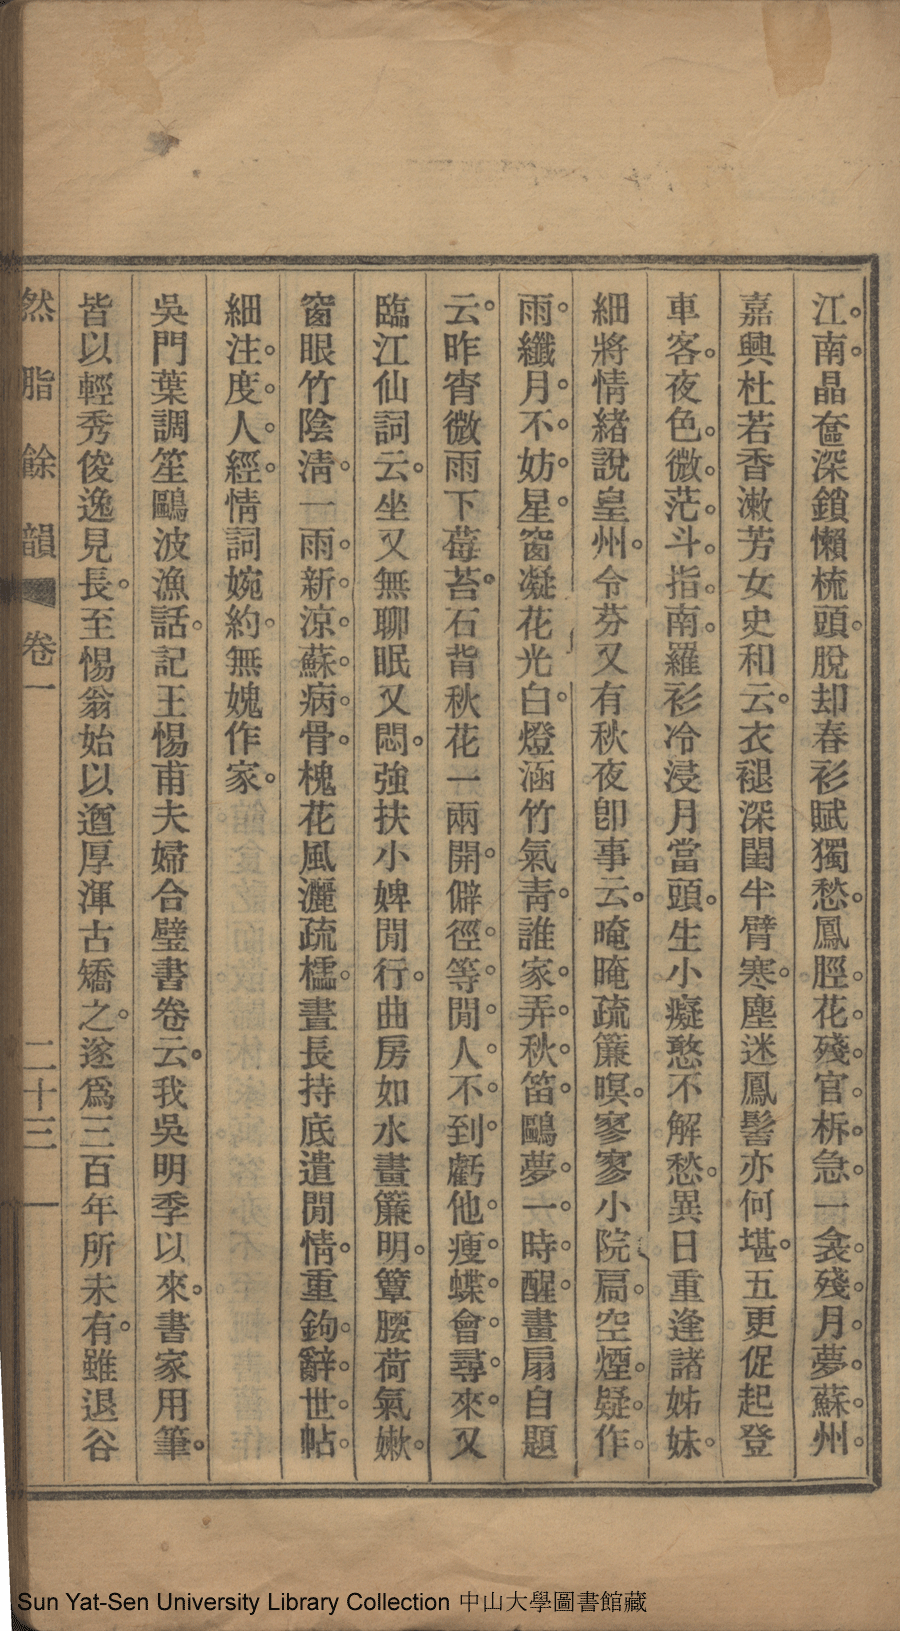 江。南。晶奩深鎖懶梳頭。脫却春衫賦獨愁。鳳脛。花。殘。官。柝。急。一衾。殘。月。夢。蘇。州。
嘉興杜若香漱芳女史和云。衣褪深閨半臂寒。塵迷鳳髻亦何堪。五更促起登
車客。夜色。微。茫。斗。指。南。羅衫冷浸月當頭。生小癡憨不解愁。異日重逢諸姊妹。
細將情緒說皇州。令芬又有秋夜卽事云。晻晻疏簾暝。寥寥小院扃。空煙。疑。作。
雨。纖月。不。妨。星。窗凝花光白。燈涵竹氣靑。誰家。弄。秋。笛。鷗夢。一。時。醒。畫扇自題
云。昨宵微雨下莓苔。石背秋花一兩開。僻徑。等。閒。人。不。到。虧他。瘦。蝶。會。尋。來。又
臨江仙詞云。坐又無聊眠又悶。強扶小婢閒行。曲房如水畫簾明。簟腰荷氣嫰。
窗眼竹陰淸。一雨。新。涼。蘇。病。骨。槐花風灑疏櫺。晝長持底遣閒情。重鉤。辭。世。帖。
細注。度。人。經。情詞婉約。無媿作家。
吳門葉調笙鷗波漁話。記王惕甫夫婦合璧書卷云。我吳明季以來。書家用筆。
皆以輕秀俊逸見長。至惕翁始以遒厚渾古矯之。遂爲三百年所未有。雖退谷
然脂餘韻 卷一 二十三
Sun Yat-Sen University Library Collection 中山大學圖書館藏